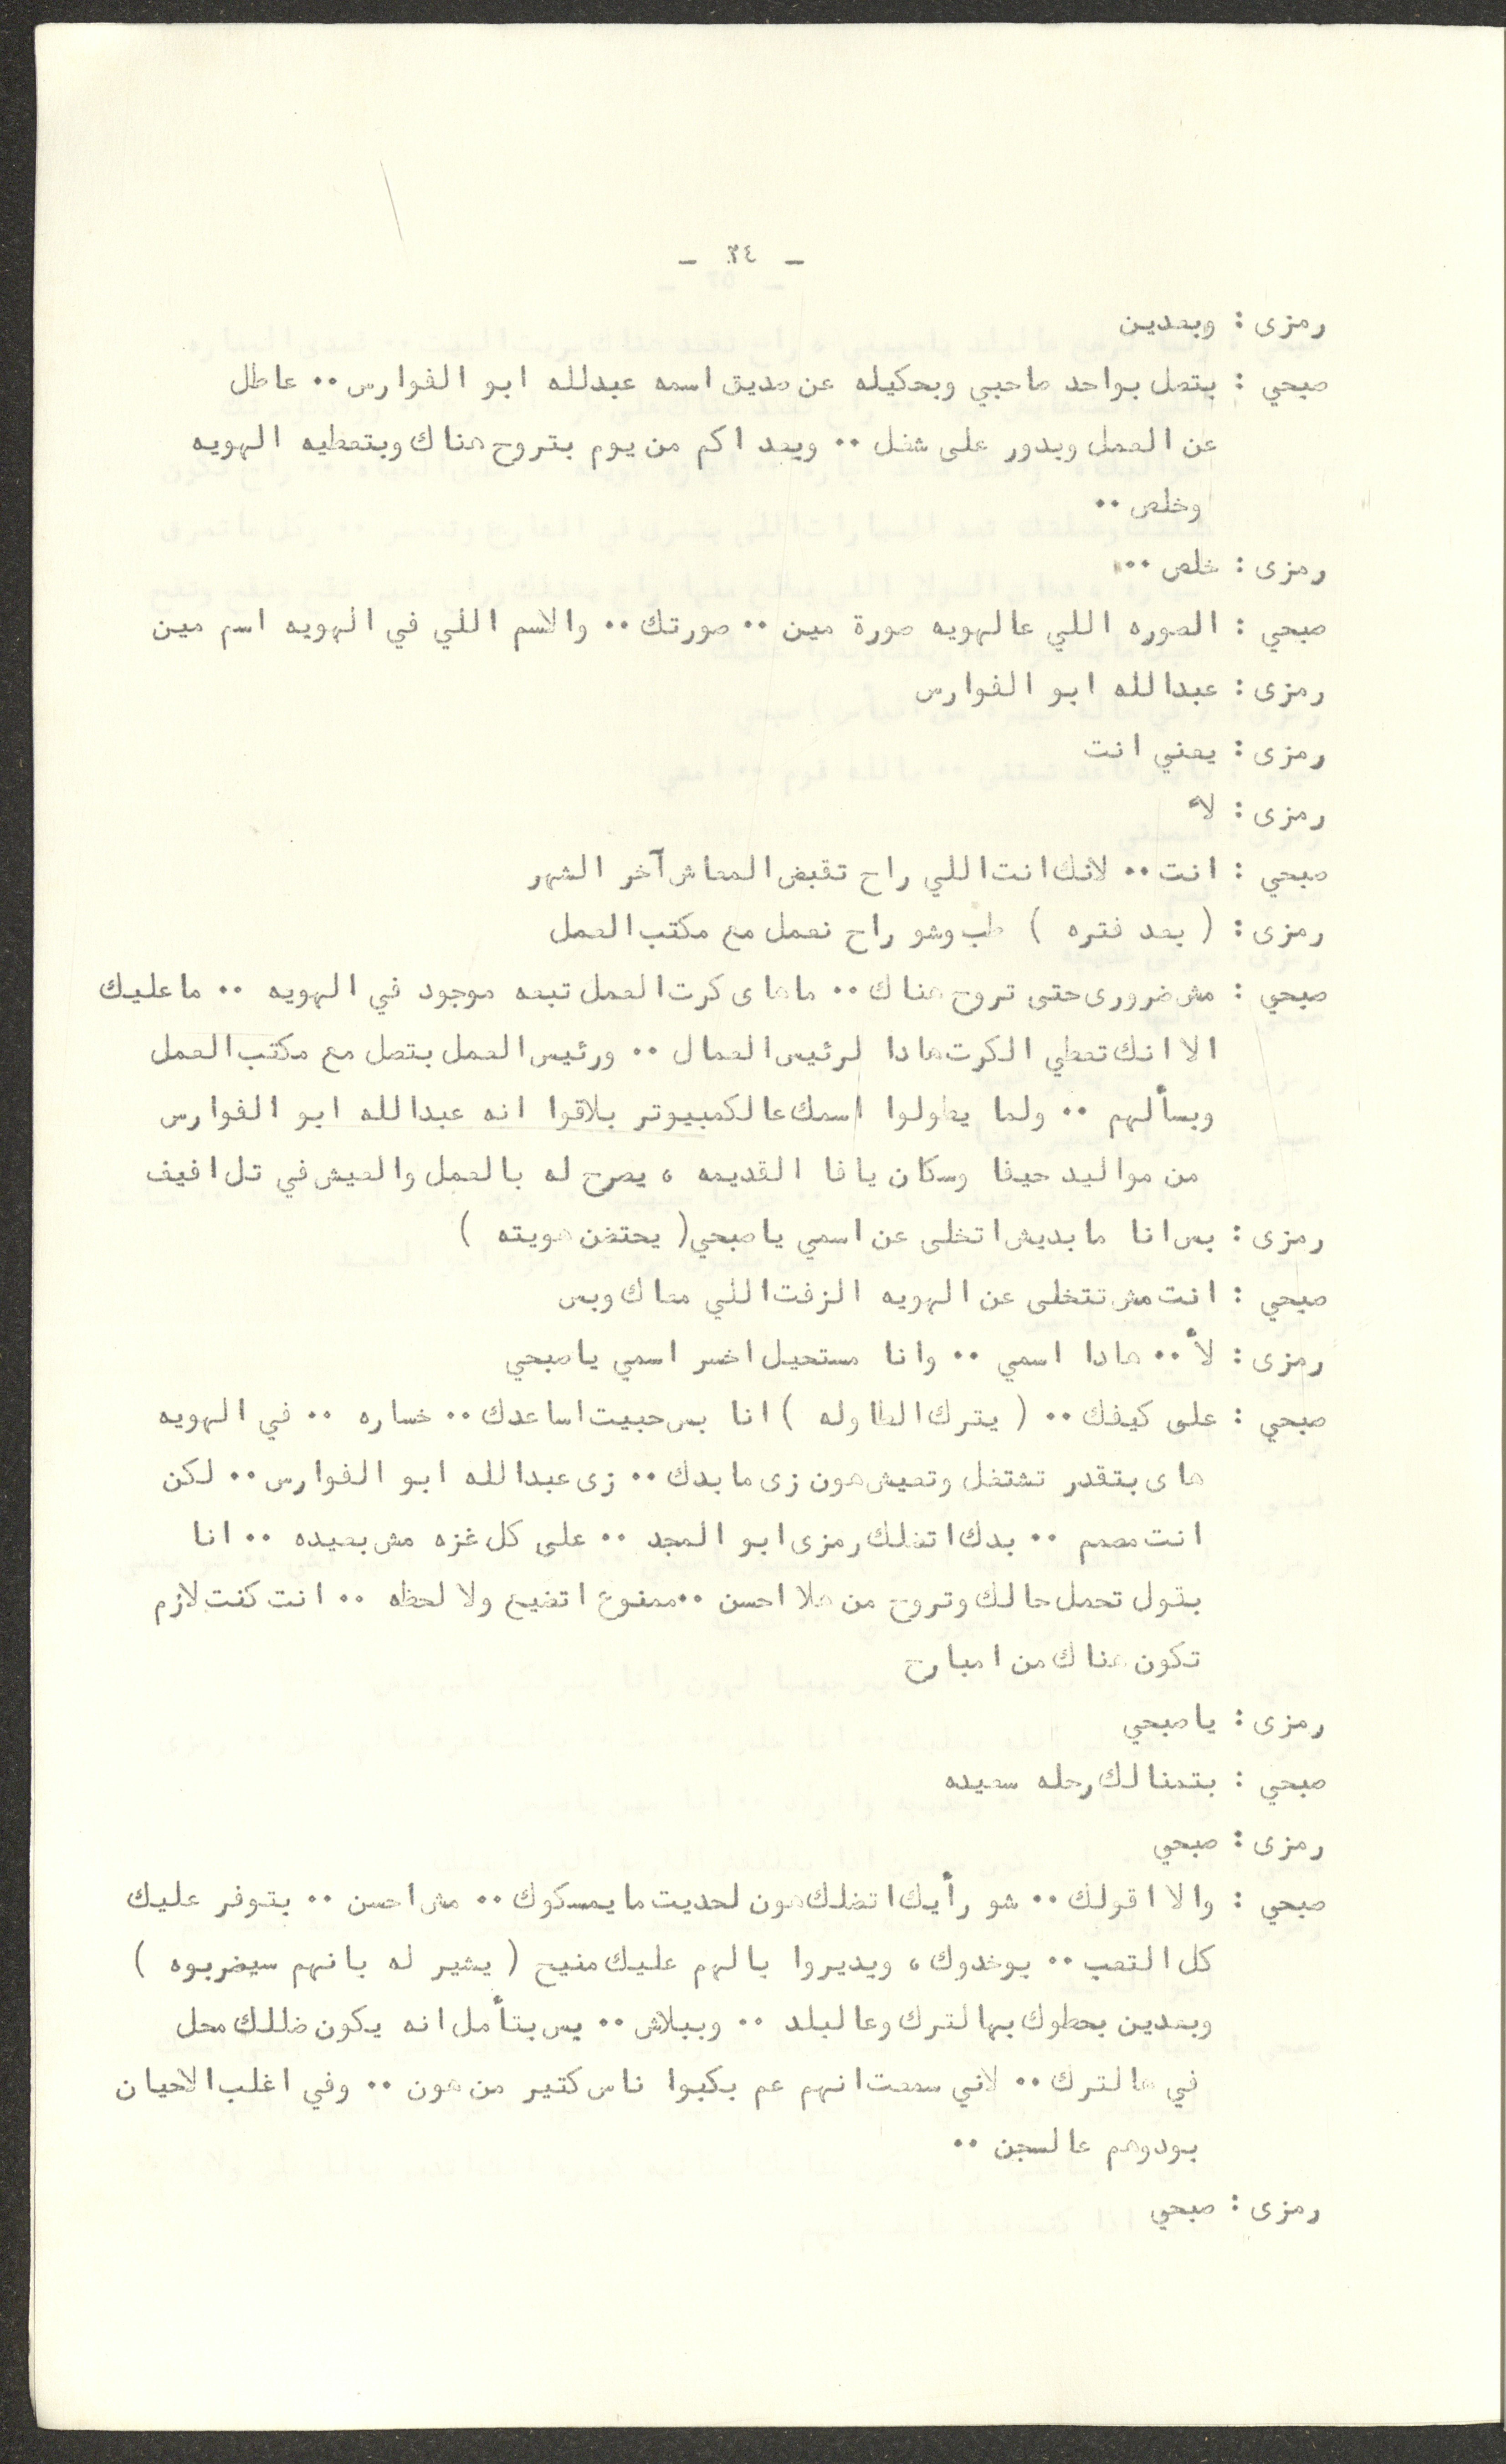 - ٣٤ -
رمزى : وبعدين
صبحي : بتصل بواحد صاحبي وبحكيله عن صديق اسمه عبدلله ابو الفوارس .. عاطل
عن العمل وبدور على شغل .. وبعد اكم من يوم بتروح هناك وبتعطيه الهويه
وخلص ..
رمزى : خلص ..
صبحي : الصوره اللي عالهويه صورة مين .. صورتك .. والاسم اللي في الهويه اسم مين
رمزى : عبدالله ابو الفوارس
رمزى : يعني انت
رمزى : لاء
صبحي : انت .. لانك انت اللي راح تقبض المعاش آخر الشهر
رمزى : ( بعد فتره ) طب وشو راح نعمل مع مكتب العمل
صبحي : مش ضرورى حتى تروح هناك .. ماهاى كرت العمل تبعه موجود في الهويه .. ماعليك
الا انك تعطي الكرت هادا لرئيس العمال .. ورئيس العمل بتصل مع مكتب العمل
وبسألهم .. ولما يطولوا اسمك عالكمبيوتر بلاقوا انه عبدالله ابو الفوارس
من مواليد حيفا وسكان يافا القديمه ، يصرح له بالعمل والعيش في تل افيف
رمزى : بس انا مابديش اتخلى عن اسمي ياصبحي ( يحتضن هويته )
صبحي : انت مش تتخلى عن الهويه الزفت اللي معاك وبس
رمزى : لأ .. هادا اسمي .. وانا مستحيل اخسر اسمي ياصبحي
صبحي : على كيفك .. ( يترك الطاوله ) انا بس حبيت اساعدك .. خساره .. في الهويه
هاى بتقدر تشتغل وتعيش هون زى مابدك .. زى عبدالله ابو الفوارس .. لكن
انت مصمم .. بدك اتضلك رمزى ابو المجد .. على كل غزه مش بعيده .. انا
بقول تحمل حالك وتروح من هلا احسن .. ممنوع اتضيع ولا لحظه .. انت كنت لازم
تكون هناك من امبارح
رمزى : ياصبحي
صبحي : بتمنالك رحله سعيده
رمزى : صبحي
صبحي : والا اقولك .. شو رأيك اتضلك هون لحديت مايمسكوك .. مش احسن .. بتوفر عليك
كل التعب .. يوخدوك ، ويديروا بالهم عليك منيح ( يشير له بانهم سيضربوه )
وبعدين بحطوك بهالترك وعالبلد .. وببلاش .. بس بتأمل انه يكون ضللك محل
في هالترك .. لاني سمعت انهم عم بكبوا ناس كتير من هون .. وفي اغلب الاحيان
بودوهم عالسجن ..
رمزى : صبحي